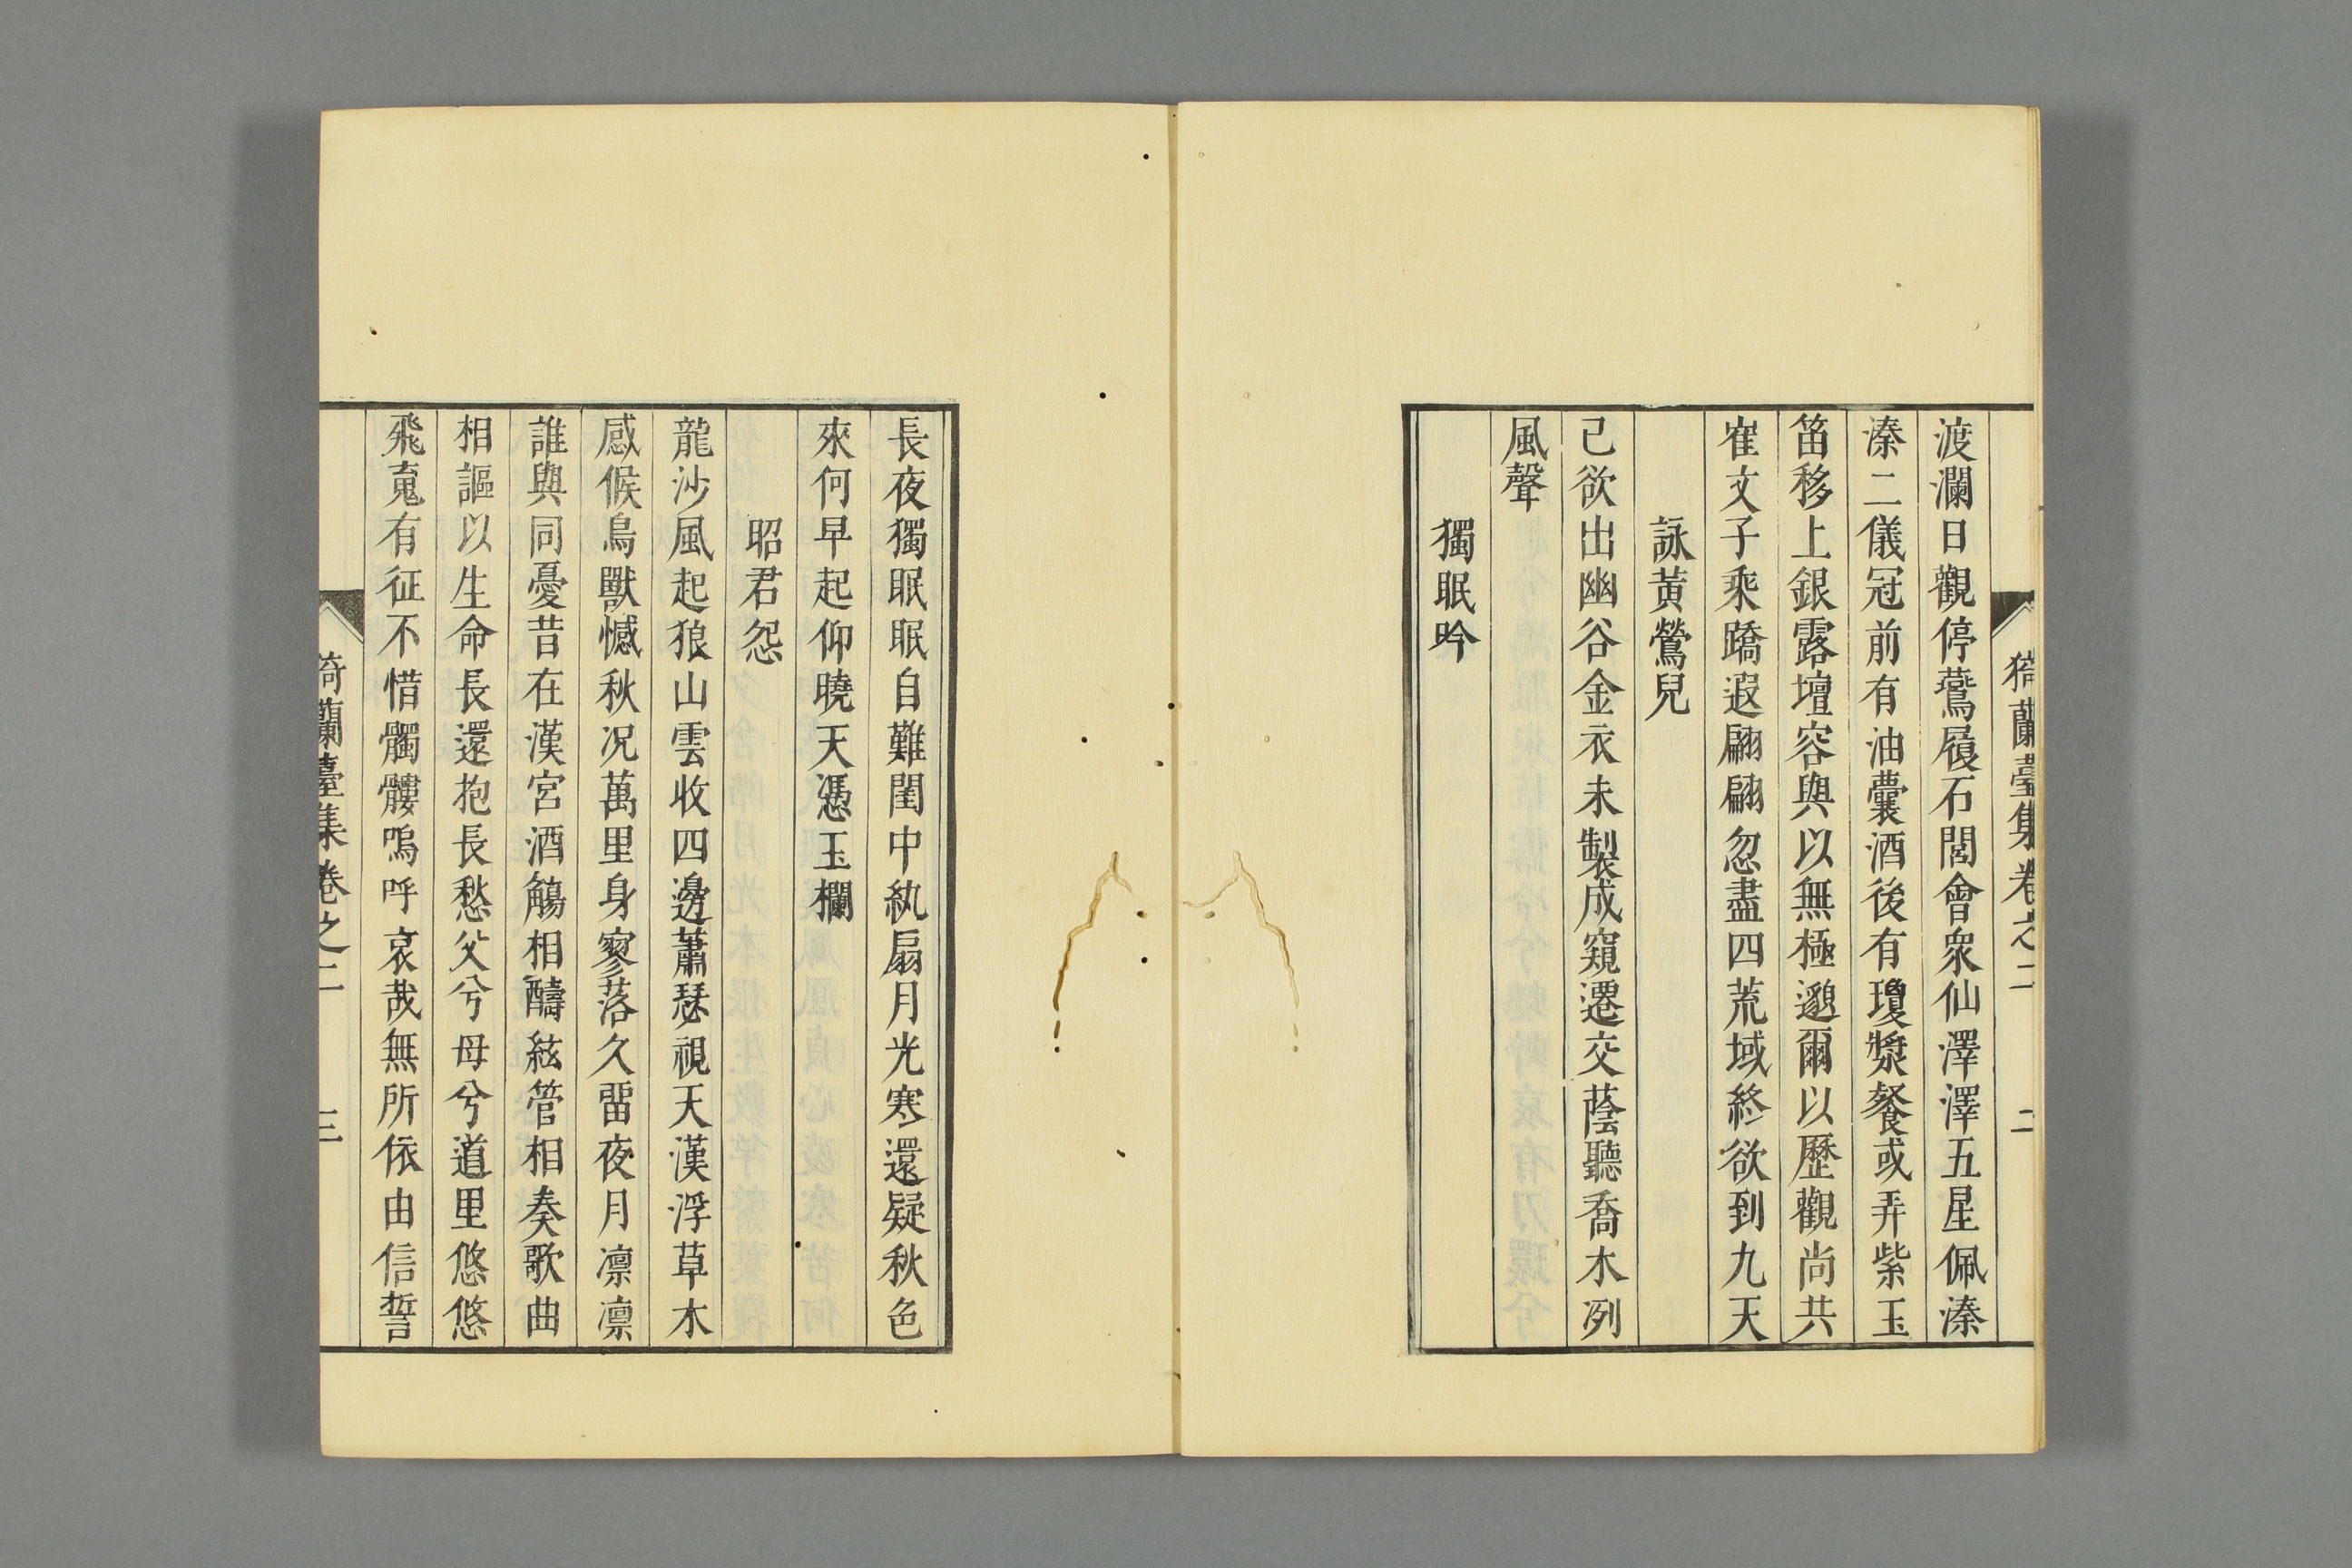 猗蘭臺集卷之二 二
渡瀾日觀停鷖履石閣會衆仙澤澤五星佩溱
溱二儀冠前有油囊酒後有瓊漿餐或弄紫玉
笛移上銀露壇容與以無極邈爾以歷觀尚共
崔文子乘蹻遐翩翩忽盡四荒域終欲到九天
詠黃鶯兒
已欲出幽谷金衣未製成窺遷交蔭聽喬木冽
風聲
獨眠吟
長夜獨眠眠自難閨中紈扇月光寒還疑秋色
來何早起仰曉天憑玉欄
昭君怨
龍沙風起狼山雲收四邊蕭瑟視天漢浮草木
感候鳥獸憾秋况萬里身寥落久留夜月凛凛
誰與同憂昔在漢宮酒觴相醻絃管相奏歌曲
相謳以生命長還抱長愁父兮母兮道里悠悠
飛䰟有征不惜髑髏嗚呼哀哉無所依由信誓
猗蘭臺集卷之二 三